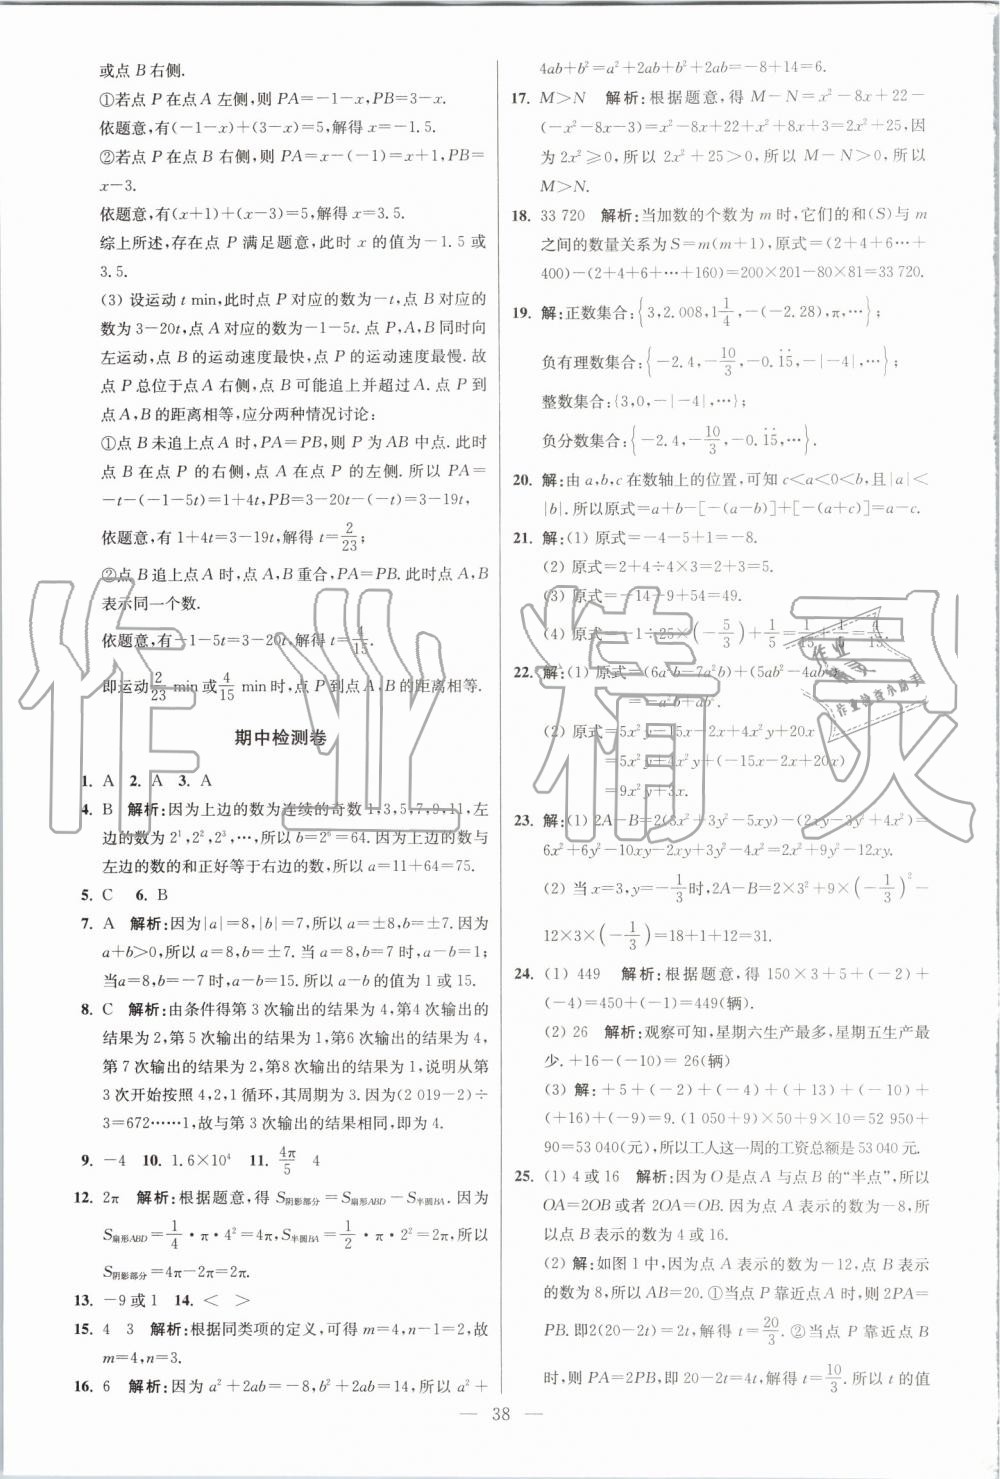 或点 B 右侧.
①若点 P 在点 A 左侧,则 PA=-1-x,PB=3-x.
依题意,有(-1-x)+(3-x)=5,解得 x=-1.5.
②若点 P 在点 B 右侧,则 PA=x-(-1)=x+1,PB=
x-3.
依题意,有(x+1)+(x-3)=5,解得 x=3.5.
综上所述,存在点 P 满足题意,此时 x 的值为-1.5 或
3.5.
(3) 设运动 t min,此时点 P 对应的数为-t,点 B 对应的
数为 3-20t,点 A 对应的数为-1-5t.点 P,A,B 同时向
左运动,点 B 的运动速度最快,点 P 的运动速度最慢.故
点 P 总位于点 A 右侧,点 B 可能追上并超过 A.点 P 到
点 A,B 的距离相等,应分两种情况讨论:
①点 B 未追上点 A 时,PA=PB,则 P 为 AB 中点.此时
点 B 在点 P 的右侧,点 A 在点 P 的左侧.所以 PA=
-t-(-1-5t)=1+4t,PB=3-20t-(-t)=3-19t,
依题意,有 1+4t=3-19t,解得 t=2/23;
②点 B 追上点 A 时,点 A,B 重合,PA=PB.此时点 A,B
表示同一个数.
依题意,有-1-5t=3-20t,解得 t=4/15.
即运动2/23 min或4/15 min时,点 P 到点 A,B 的距离相等.
期中检测卷
1. A 2. A 3. A
4. B 解析:因为上边的数为连续的奇数 1,3,5,7,9,11,左
边的数为 2¹,2²,2³,…,所以 b=2⁶=64.因为上边的数与
左边的数的和正好等于右边的数,所以 a=11+64=75.
5. C 6. B
7. A 解析:因为|a|=8,|b|=7,所以 a=±8,b=±7.因为
a+b>0,所以 a=8,b=±7.当 a=8,b=7 时,a-b=1;
当a=8,b=-7 时,a-b=15.所以 a-b 的值为 1 或 15.
8. C 解析:由条件得第 3 次输出的结果为 4,第4 次输出的
结果为 2,第 5 次输出的结果为 1,第6 次输出的结果为 4,
第 7 次输出的结果为 2,第8 次输出的结果为 1,说明从第
3 次开始按照 4,2,1 循环,其周期为 3.因为(2 019-2)÷
3=672……1,故与第 3 次输出的结果相同,即为 4.
9. -4 10. 1.6×10⁴ 11. 4π/5 4
12. 2π 解析:根据题意,得 S阴影部分=S扇形ABD-S半圆BA.因为
S扇形ABD=1/4·π·4²=4π,S半圆BA=1/2·π·2²=2π,所以
S阴影部分=4π-2π=2π.
13. -9 或 1 14. < >
15. 4 3 解析:根据同类项的定义,可得 m=4,n-1=2,故
m=4,n=3.
16. 6 解析:因为 a²+2ab=-8,b²+2ab=14,所以 a²+
4ab+b²=a²+2ab+b²+2ab=-8+14=6.
17. M>N 解析:根据题意,得 M-N=x²-8x+22-
(-x²-8x-3)=x²-8x+22+x²+8x+3=2x²+25,因
为 2x²≥0,所以 2x²+25>0,所以 M-N>0,所以
M>N.
18. 33 720 解析:当加数的个数为 m 时,它们的和(S)与 m
之间的数量关系为 S=m(m+1),原式=(2+4+6…+
400)-(2+4+6+…+160)=200×201-80×81=33 720.
19. 解:正数集合:{3,2.008,1 1/4,-(-2.28),π,…};
负有理数集合:{-2.4,-10/3,-0.1̇5̇,-|-4|,…};
整数集合:{3,0,-|-4|,…};
负分数集合:{-2.4,-10/3,-0.1̇5̇,…}.
20. 解:由 a,b,c 在数轴上的位置,可知 c<a<0<b,且|a|<
|b|.所以原式=a+b-[-(a-b)]+[-(a+c)]=a-c.
21. 解:(1) 原式=-4-5+1=-8.
(2) 原式=2+4÷4×3=2+3=5.
(3) 原式=-14+9+54=49.
(4) 原式=-1÷25×(-5/3)+1/5=1/15+1/5=4/15.
22. 解:(1) 原式=(6a²b-7a²b)+(5ab²-4ab²)
=-a²b+ab².
(2) 原式=5x²y-15x-2x+4x²y+20x
=5x²y+4x²y+(-15x-2x+20x)
=9x²y+3x.
23. 解:(1) 2A-B=2(3x²+3y²-5xy)-(2xy-3y²+4x²)=
6x²+6y²-10xy-2xy+3y²-4x²=2x²+9y²-12xy.
(2) 当 x=3,y=-1/3时,2A-B=2×3²+9×(-1/3)²-
12×3×(-1/3)=18+1+12=31.
24. (1) 449 解析:根据题意,得 150×3+5+(-2)+
(-4)=450+(-1)=449(辆).
(2) 26 解析:观察可知,星期六生产最多,星期五生产最
少.+16-(-10)= 26(辆)
(3) 解:+5+(-2)+(-4)+(+13)+(-10)+
(+16)+(-9)=9.(1 050+9)×50+9×10=52 950+
90=53 040(元),所以工人这一周的工资总额是 53 040 元.
25. (1) 4 或 16 解析:因为 O 是点 A 与点 B 的“半点”,所以
OA=2OB 或者 2OA=OB.因为点 A 表示的数为-8,所
以点 B 表示的数为 4 或 16.
(2) 解:如图 1 中,因为点 A 表示的数为-12,点 B 表示
的数为 8,所以 AB=20.①当点 P 靠近点 A 时,则 2PA=
PB.即2(20-2t)=2t,解得 t=20/3.②当点 P 靠近点 B
时,则 PA=2PB,即 20-2t=4t,解得 t=10/3.所以 t 的值
— 38 —
作业精灵